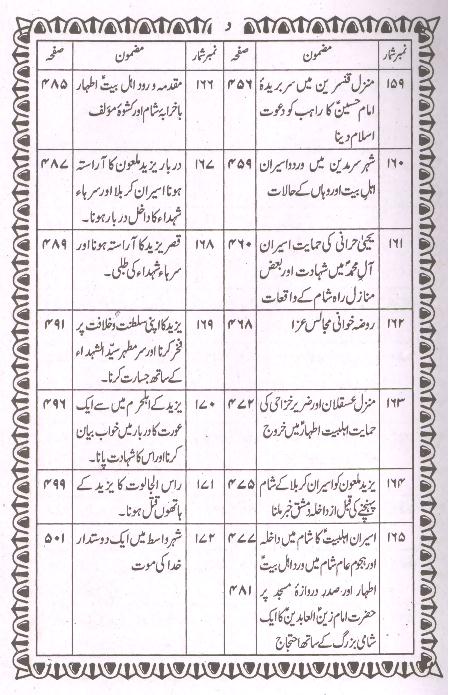 و
نمبرشمار مضمون صفحہ
۱۵۹ منزل قنسرین میں سر بریدۂ ۴۵۶
امام حسینؑ کا راہب کو دعوت
اسلام دینا
۱۶۰ شہر سرمدین میں ورود اسیران ۴۵۹
اہل بیت اور وہاں کے حالات
۱۶۱ یحییٰ حرانی کی حمایت اسیران ۴۶۰
آل محمدؐ میں شہادت اور بعض
منازل راہ شام کے واقعات
۱۶۲ روضہ خوانی مجالس عزا ۴۶۸
۱۶۳ منزل عسقلان اور ضریر خزاعی کی ۴۷۲
حمایت اہلبیت اطہارؑ میں خروج
۱۶۴ یزید ملعون کو اسیران کربلا کے شام ۴۷۵
پہنچنے کی قبل از داخلہ دمشق خبر ملنا
۱۶۵ اسیران اہلبیتؑ کا شام میں داخلہ ۴۷۷
اور ہجوم عام شام میں ورود اہل بیتؑ
اطہار اور صدر دروازہ مسجد پر ۴۸۱
حضرت امام زین العابدینؑ کا ایک
شامی بزرگ کے ساتھ احتجاج
نمبرشمار مضمون صفحہ
۱۶۶ مقدمہ ورود اہل بیتؑ اطہار ۴۸۵
باخرابہ شام اور کشوۂ مؤلف
۱۶۷ دربار یزید ملعون کا آراستہ ۴۸۷
ہونا اسیران کربلا اور سرہاء
شہداء کا داخل دربار ہونا۔
۱۶۸ قصر یزید کا آراستہ ہونا اور ۴۸۹
سرہاء شہداء کی طلبی۔
۱۶۹ یزید کا اپنی سلطنت وخلافت پر ۴۹۱
فخر کرنا اور سر مطہر سیّد الشہداء
کے ساتھ جسارت کرنا۔
۱۷۰ یزید کے اہلحرم میں سے ایک ۴۹۶
عورت کا دربار میں خواب بیان
کرنا اور اس کا شہادت پانا۔
۱۷۱ راس الجالوت کا یزید کے ۴۹۹
ہاتھوں قتل ہونا۔
۱۷۲ شہر واسط میں ایک دوستدار ۵۰۱
خدا کی موت